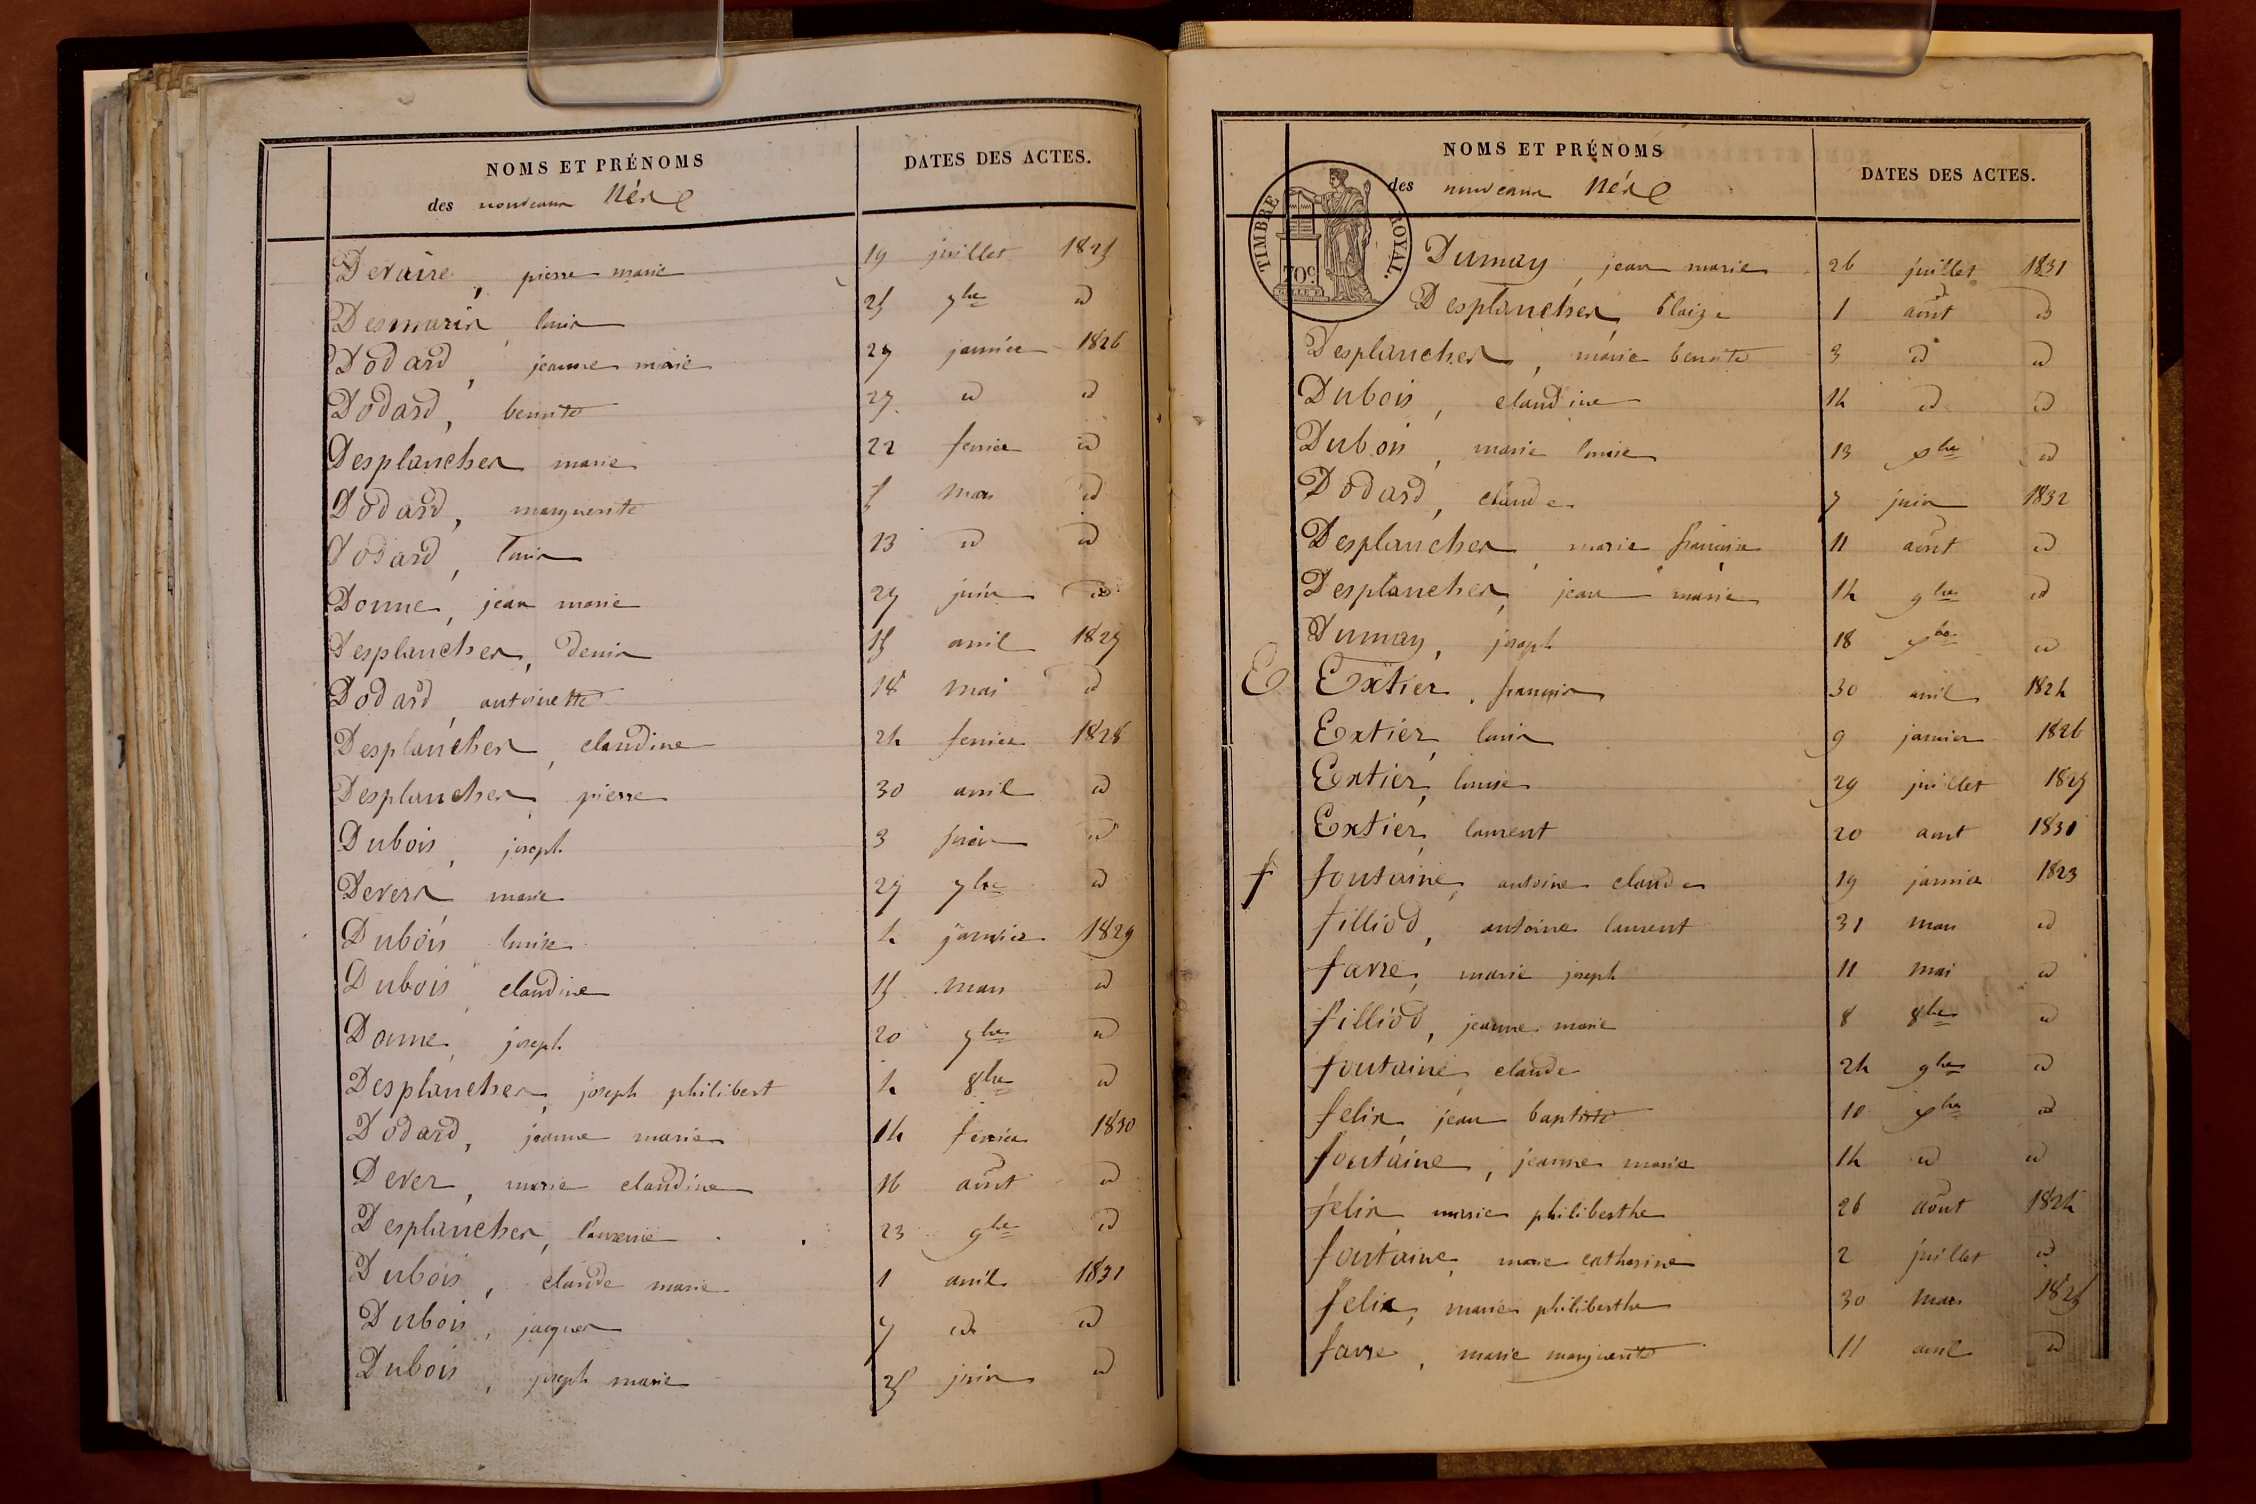 NOMS ET PRÉNOMS
des nouveaux Nés
DATES DES ACTES.
Devaire, pierre marie 19 juillet 1825
Desmaris louis 25 7bre id
Dodard, jeanne marie 27 janvier 1826
Dodard, benoite 27 id id
Desplanches marie 22 fevrier id
Dodard, marguerite 5 mars id
Dodard, louis 13 id id
Donne, jean marie 27 juin id
Desplanches, denis 15 avril 1827
Dodard antoinette 18 mai id
Desplanches, claudine 24 fevrier 1828
Desplanches, pierre 30 avril id
Dubois, joseph 3 juin id
Devers marie 27 7bre id
Dubois louise 4 janvier 1829
Dubois claudine 15 mars id
Donne, joseph 20 7bre id
Desplanches, joseph philibert 4 8bre id
Dodard, jeanne marie 14 fevrier 1830
Dever, marie claudine 16 août id
Desplanches, 23 9bre id
Dubois, claude marie 1 avril 1831
Dubois, jacques 7 id id
Dubois, joseph marie 25 juin id
NOMS ET PRÉNOMS
des nouveaux Nés
DATES DES ACTES.
TIMBRE ROYAL.
70c.
Dumay, jean marie 26 juillet 1831
Desplanches, blaize 1 août id
Desplanches, marie benoite 3 id id
Dubois, claudine 14 id id
Dubois, marie louise 13 xbre id
Dodard, claude 7 juin 1832
Desplanches, marie françoise 11 août id
Desplanches, jean marie 14 9bre id
Dumay, joseph 18 xbre id
E Extier, françois 30 avril 1824
Extier, louis 9 janvier 1826
Extier, louise 29 juillet 1827
Extier, laurent 20 aout 1831
f fontaine, antoine claude 19 janvier 1823
filliod, antoine laurent 31 mars id
favre, marie joseph 11 mai id
filliod, jeanne marie 8 8bre id
fontaine, claude 24 9bre id
felix, jean baptiste 10 xbre id
fontaine, jeanne marie 14 id id
felix, marie philiberthe 26 août 1824
fontaine, marie catherine 2 juillet id
felix, marie philiberthe 30 mars 1825
favre, marie marguerite 11 avril id